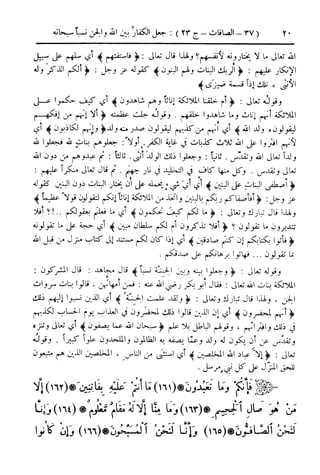 ٢٠ (٣٧ – الصافات – ج ٢٣) : جعل الكفار بين الله والجن نسباً سبحانه
الله تعالى ما لا يختارونه لأنفسهم؟ ولهذا قال تعالى : ﴿ فاستفتهم ﴾ أي سلهم على سبيل
الإنكار عليهم : ﴿ ألربك البنات ولهم البنون ﴾ كقوله عز وجل : ﴿ ألكم الذكر وله
الأنثى ٭ تلك إذاً قسمة ضيزى ﴾
وقوله تعالى : ﴿ أم خلقنا الملائكة إناثاً وهم شاهدون ﴾ أي كيف حكموا على
الملائكة أنهم إناث وما شاهدوا خلقهم . وقوله جلت عظمته ﴿ ألا إنهم من إفكهم
ليقولون ٭ ولد الله ﴾ أي من كذبهم ليقولون صدر منه ولد ﴿ وإنهم لكاذبون ﴾ أي
لأنهم افتروا على الله ثلاث كذبات في غاية الكفر . أولاً : جعلهم بنات لله فجعلوا لله
ولداً تعالى الله وتقدّس . ثانياً : وجعلوا ذلك الولد أنثى . ثالثاً : ثم عبدوهم من دون الله
تعالى وتقدس . وكل منها كاف في التخليد في نار جهنم . ثم قال تعالى منكراً عليهم :
﴿ أصطفى البنات على البنين ﴾ أي أي شيء يحمله على أن يختار البنات دون البنين كقوله
عز وجل : ﴿ أفأصفاكم ربكم بالبنين واتخذ من الملائكة إناثاً إنكم لتقولون قولاً عظيماً ﴾
ولهذا قال تبارك وتعالى : ﴿ ما لكم كيف تحكمون ﴾ أي ما فعلتم بعقولكم ..!؟ أفلا
تتدبرون ما تقولون ؟ ﴿ أفلا تذكرون أم لكم سلطان مبين ﴾ أي حجة على ما تقولونه
﴿ فأتوا بكتابكم إن كنتم صادقين ﴾ أي إذا كان لكم مستند إلى كتاب منزل من قبل الله
بما تقولون ... فهاتوا برهانكم على صدقكم .
وقوله تعالى : ﴿ وجعلوا بينه وبين الجنّة نسباً ﴾ قال مجاهد : قال المشركون :
الملائكة بنات الله تعالى : فقال أبو بكر رضي الله عنه : فمن أمهاتهن . قالوا بنات سروات
الجن . ولهذا قال تبارك وتعالى : ﴿ ولقد علمت الجنّة ﴾ أي الذين نسبوا إليهم ذلك
﴿ أنهم لمحضرون ﴾ أي إن الذين قالوا ذلك لمحضرون في العذاب يوم الحساب لكذبهم
في ذلك وافترائهم ، وقولهم الباطل بلا علم ﴿ سبحان الله عما يصفون ﴾ أي تعالى وتنزه
وتقدّس عن أن يكون له ولد وعمّا يصفه به الظالمون والملحدون علواً كبيراً . وقوله
تعالى : ﴿ إلا عباد الله المخلصين ﴾ أي استثنى من الناس ، المخلصين الذين هم متبعون
للحق المنزّل على كل نبي مرسل .
فَإِنَّكُمْ وَمَا تَعْبُدُونَ ﴿١٦١﴾ مَا أَنْتُمْ عَلَيْهِ بِفَاتِنِينَ ﴿١٦٢﴾ إِلَّا
مَنْ هُوَ صَالِ الْجَحِيمِ ﴿١٦٣﴾ وَمَا مِنَّا إِلَّا لَهُ مَقَامٌ مَعْلُومٌ ﴿١٦٤﴾ وَإِنَّا
لَنَحْنُ الصَّافُّونَ ﴿١٦٥﴾ وَإِنَّا لَنَحْنُ الْمُسَبِّحُونَ ﴿١٦٦﴾ وَإِنْ كَانُوا